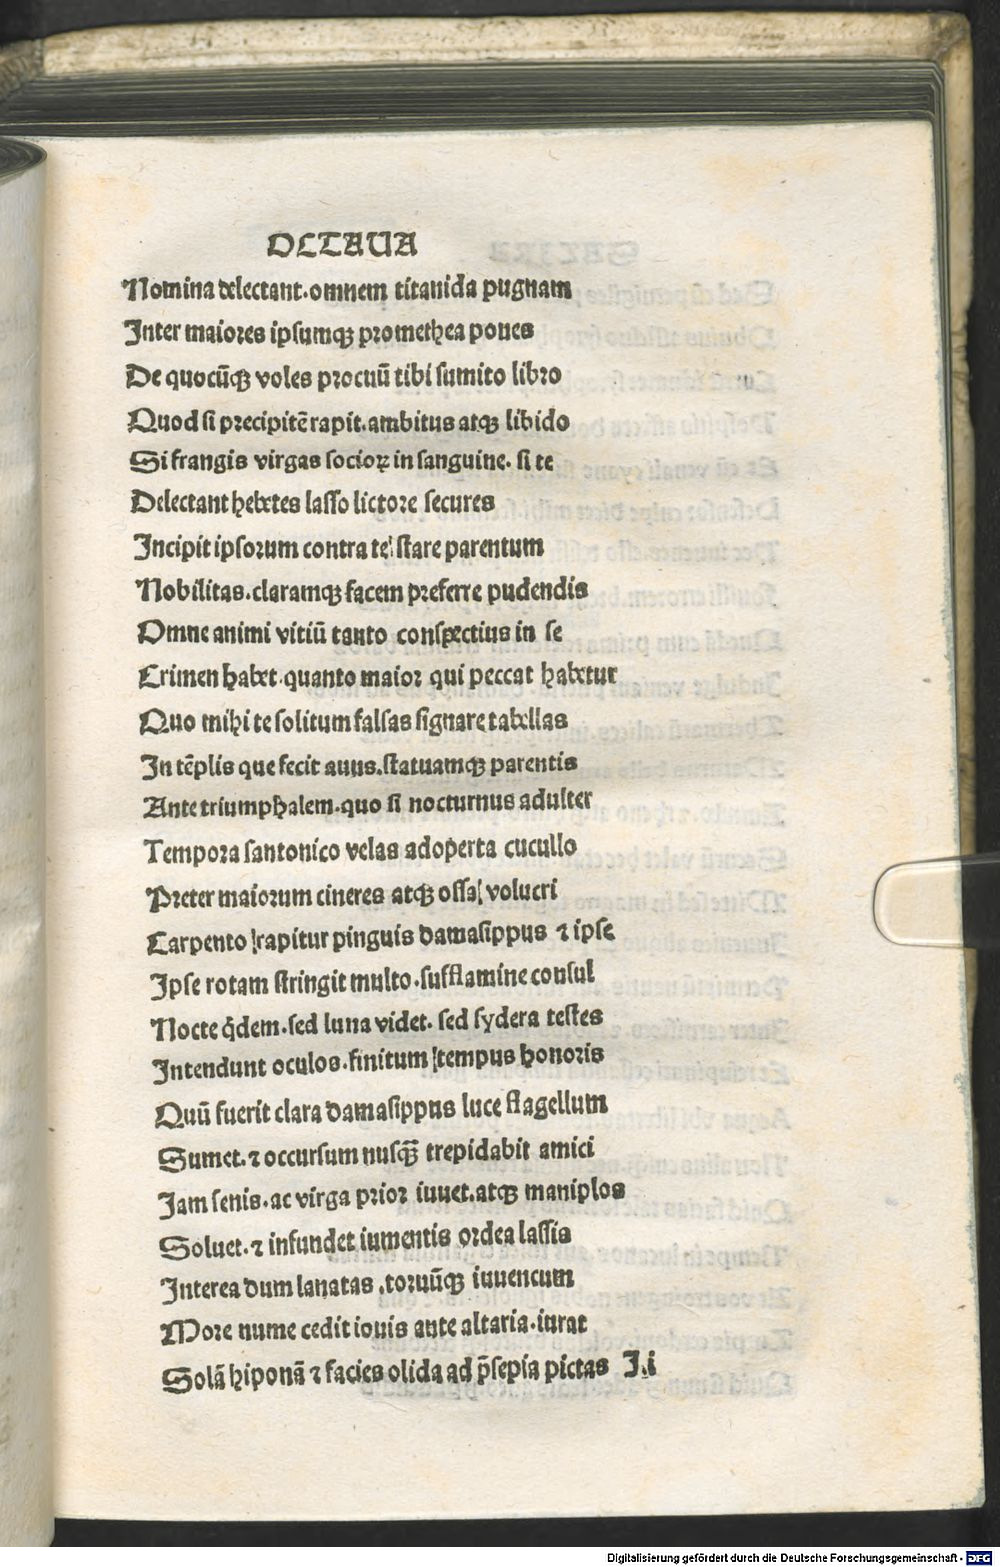 OCTAUA
Nomina delectant.omnem titanida pugnam
Inter maiores ipsumqꝫ promethea pones
De quocũqꝫ voles procuũ tibi sumito libro
Quod si precipitẽ rapit.ambitus atqꝫ libido
Si frangis virgas socioꝝ in sanguine. si te
Delectant hebetes lasso lictore secures
Incipit ipsorum contra te stare parentum
Nobilitas.claramqꝫ facem preferre pudendis
Omne animi vitiũ tanto conspectius in se
Crimen habet.quanto maior qui peccat habetur
Quo mihi te solitum falsas signare tabellas
In tẽplis que fecit auus.statuamqꝫ parentis
Ante triumphalem.quo si nocturnus adulter
Tempora santonico velas adoperta cucullo
Preter maiorum cineres atqꝫ ossa volucri
Carpento rapitur pinguis damasippus ⁊ ipse
Ipse rotam stringit multo.sufflamine consul
Nocte q̇dem.sed luna videt. sed sydera testes
Intendunt oculos.finitum tempus honoris
Quũ fuerit clara damasippus luce flagellum
Sumet.⁊ occursum nusqꝫ̃ trepidabit amici
Jam senis.ac virga prior iuuet.atqꝫ maniplos
Soluet.⁊ infundet iumentis ordea lassis
Interea dum lanatas.toruũqꝫ iuuencum
More nume cedit iouis ante altaria.iurat
Solã hiponã ⁊ facies olida ad p̃sepia pictas I.i
Digitalisierung gefördert durch die Deutsche Forschungsgemeinschaft - DFG